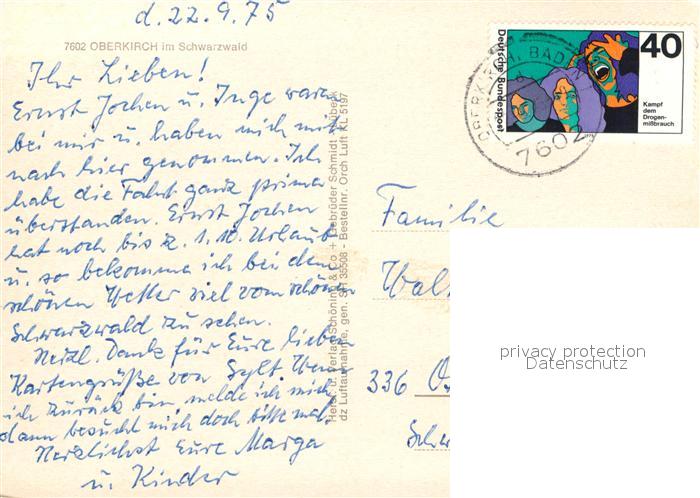 d. 22.9.75
7602 OBERKIRCH im Schwarzwald
Ihr Lieben!
Ernst Jochen u. Inge waren
bei mir u. haben mich mit
nach hier genommen. Ich
habe die Fahrt ganz prima
überstanden. Ernst Jochen
hat noch bis z. 1.10. Urlaub
u. so bekomme ich bei dem
schönen Wetter viel vom schönen
Schwarzwald zu sehen.
Herzl. Dank für Eure lieben
Kartengrüße von Sylt. Wenn
ich zurück bin, melde ich mich
dann besucht mich doch bitte mal.
Herzlichst Eure Marga
u. Kinder
Verlag Schöning & Co + Gebrüder Schmidt
dz Luftaufnahme, gen. SH 35508 - Bestellnr. Orch Luft KL 5197
Deutsche Bundespost
40
Kampf
dem
Drogen-
mißbrauch
OBERKIRCH, BADEN
7602
Familie
336
privacy protection
Datenschutz